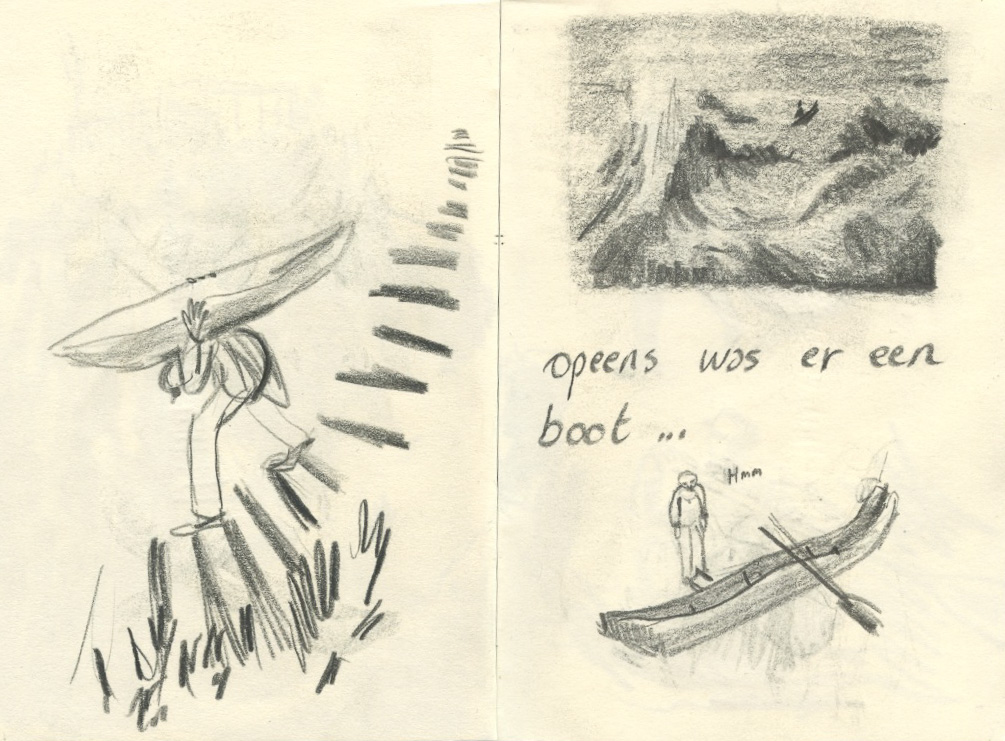 opeens was er een
boot ...
Hmm